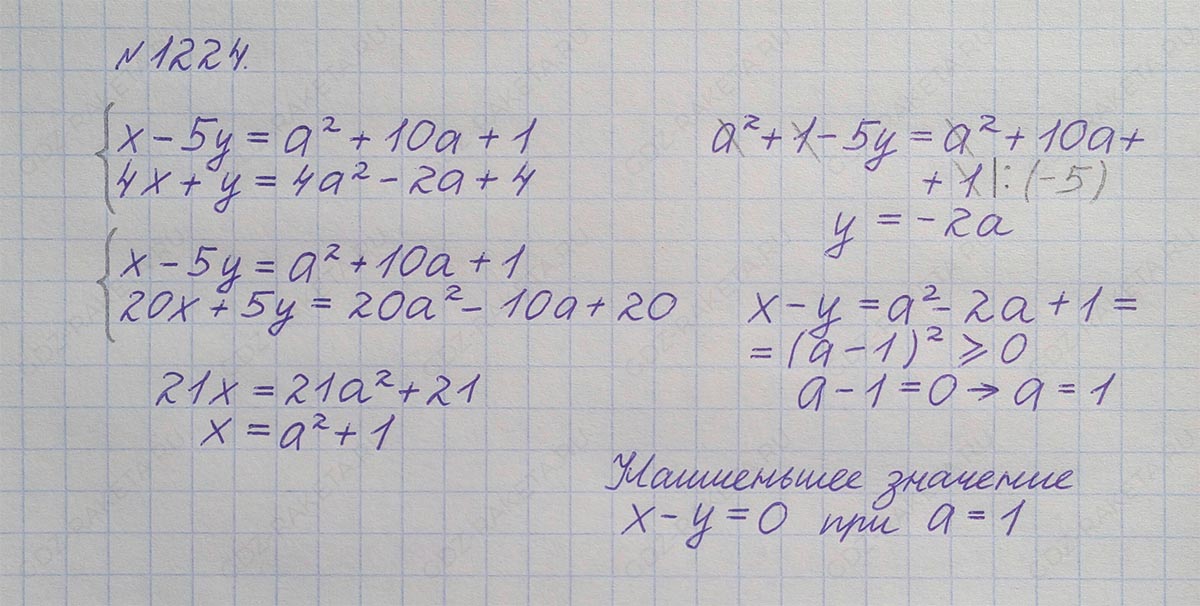 N1224.
x - 5y = a² + 10a + 1
4x + y = 4a² - 2a + 4
x - 5y = a² + 10a + 1
20x + 5y = 20a² - 10a + 20
21x = 21a² + 21
x = a² + 1
a² + 1 - 5y = a² + 10a +
+ 1 | : (-5)
y = -2a
x - y = a² - 2a + 1 =
= (a - 1)² ⩾ 0
a - 1 = 0 → a = 1
Наименьшее значение
x - y = 0 при a = 1
GDZ-RAKETA.RU